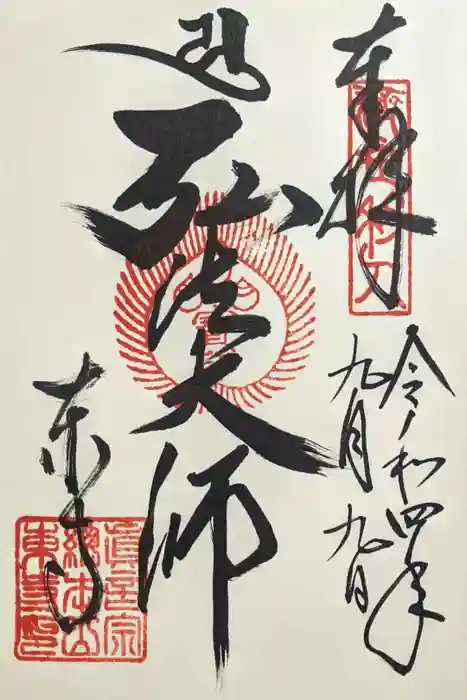 奉拝
令和四年
九月九日
弘法大師
東寺
真言宗
總本山
東寺印